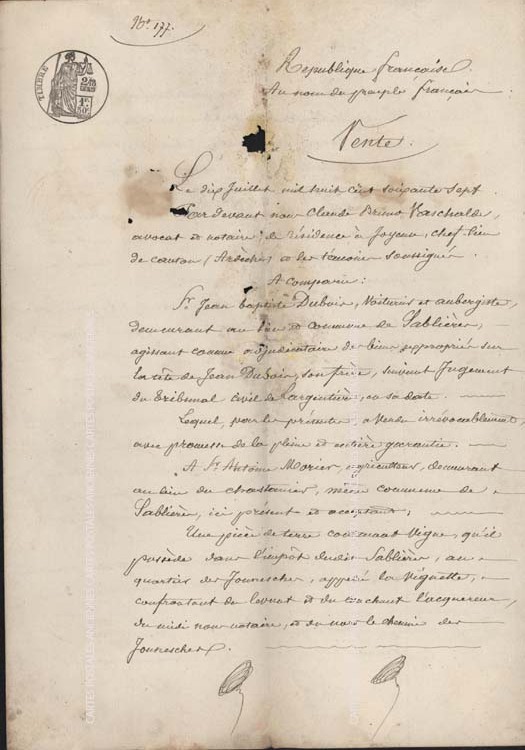 No. 177.
TIMBRE
2/10 EN SUS
1F. 50c.
République française.
Au nom du peuple français.
Vente.
Le dix Juillet mil huit cent soixante sept
Pardevant nous Claude Bruno Vaschalde,
avocat et notaire, de résidence à Joyeuse, chef-lieu
de canton (Ardèche) et les témoins soussignés.
A Comparu:
Sr. Jean baptiste Dubois, voiturier et aubergiste,
demeurant au lieu et commune de Sablières,
agissant comme adjudicataire des biens expropriés sur
la tête de Jean Dubois, son frère, suivant Jugement
du Tribunal Civil de Largentière, en sa date.
Lequel, par les présentes, a vendu irrévocablement,
avec promesse de la pleine et entière garantie.
A Sr. Antoine Morier, agriculteur, demeurant
au lieu du chastanier, même commune de
Sablières, ici présent et acceptant;
Une pièce de terre commant Vigne, qu'il
possède dans l'impôt dudit Sablières, au
quartier des Jounesches, appelée la Vignette,
confrontant du levant et du couchant l'acquéreur,
du midi nous notaire, et du nord le chemin des
Jounesches.
CARTES POSTALES ANCIENNES